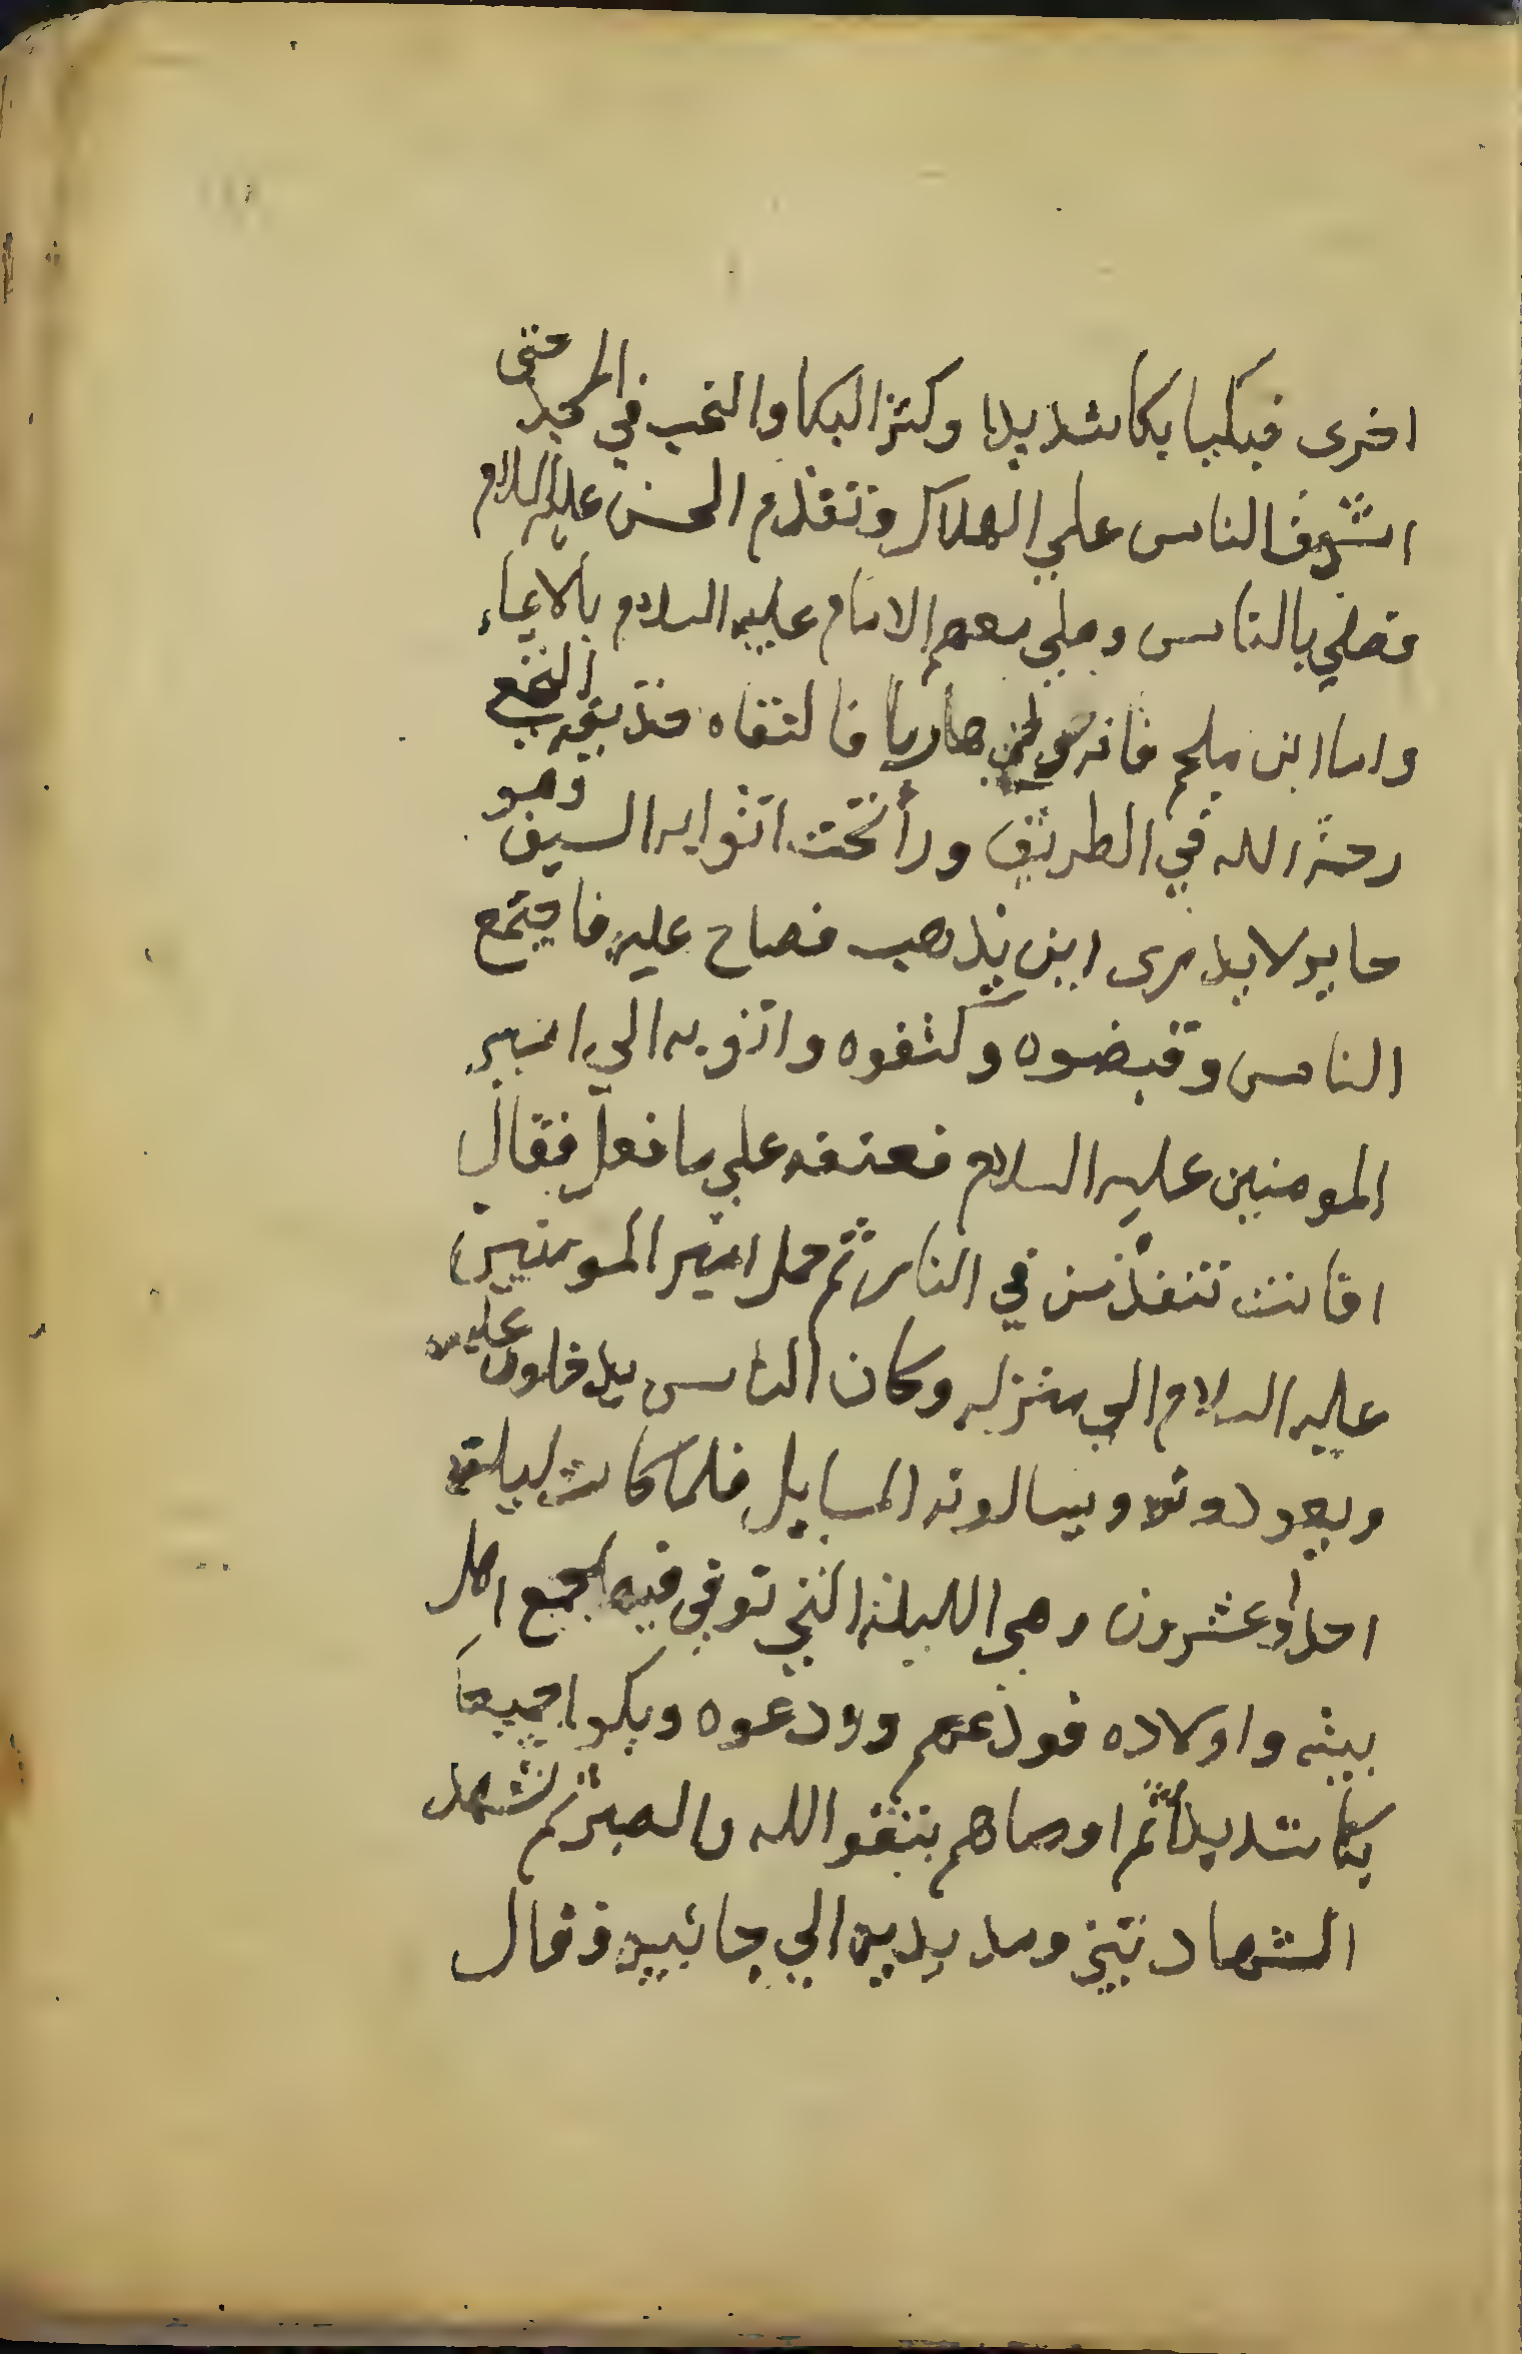 اخرى فبكيا بكا شديدا وكثر البكا والنحيب في المسجد حتى
اشرف الناس علي الهلاك وتقدم الحسن عليه السلام
فصلي بالناس وصلي معهم الامام عليه السلام بالايماء
واما ابن ملجم فانه هاربا فالتقاه النخع
رحمة الله في الطريق ورأ تحت اثوابه السيف وهو
حاير لا يدرى اين يذهب فصاح عليه فاجتمع
الناس وقبضوه وكتفوه واتو به الي امير
المومنين عليه السلام فعنفه علي ما فعل فقال
افانت تنقذ من في النار ثم حمل امير المومنين
عليه السلام الي منزله وكان الناس يدخلون عليه
ويعودونه ويسالونه المسايل فلما كانت ليلة
احدا وعشرون وهي الليلة التي توفي فيها جمع اهل
بيته واولاده فودعهم وودعوه وبكوا جميعاً
بكا شديداً ثم اوصاهم بتقوا الله والصبر ثم تشهد
الشهادتين ومد يديه الي جانبيه وقال